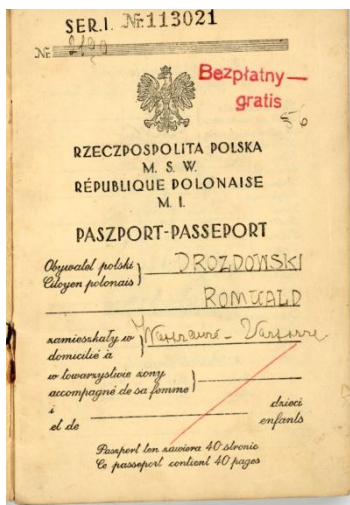 SER.I. Nr.113021
Nr 2190
Bezpłatny—
gratis
56
RZECZPOSPOLITA POLSKA
M. S. W.
RÉPUBLIQUE POLONAISE
M. I.
PASZPORT-PASSEPORT
Obywatel polski } DROZDOWSKI
Citoyen polonais
ROMUALD
zamieszkały w } Warszawa - Varsovie
domicilié à
w towarzystwie żony }
accompagné de sa femme
i dzieci
et de enfants
Paszport ten zawiera 40 stronic
Ce passeport contient 40 pages